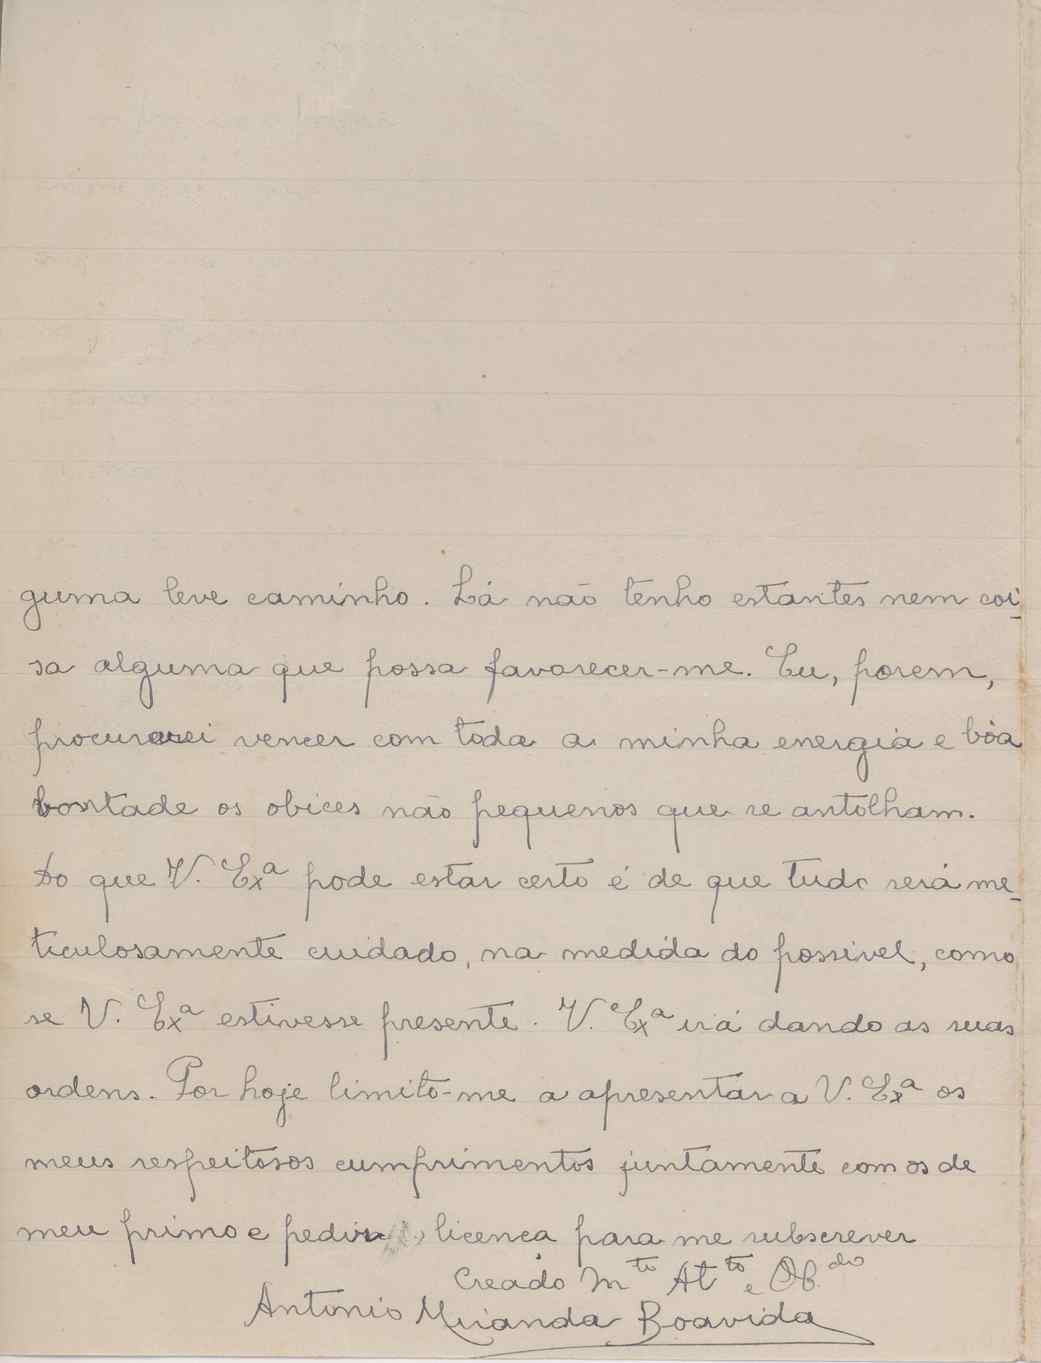 guma leve caminho. Lá não tenho estantes nem coi-
sa alguma que possa favorecer-me. Eu, porem,
procurarei vencer com toda a minha energia e bôa
bontade os obices não pequenos que se antolham.
Do que V. Exª pode estar certo é de que tudo será me-
ticulosamente cuidado, na medida do possivel, como
se V. Exª estivesse presente. V. Exª irá dando as suas
ordens. Por hoje limito-me a apresentar a V. Exª os
meus respeitosos cumprimentos juntamente com os de
meu primo e pedir licença para me subscrever
Creado Mto Atto e Obdo
Antonio Miranda Boavida